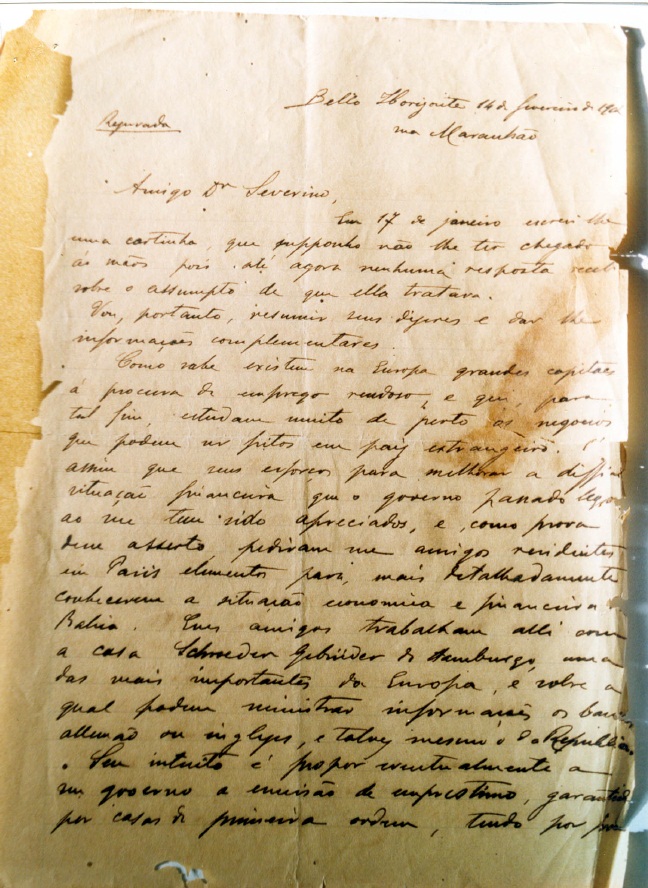 Bello Horizonte 14 de fevereiro de
rua Maranhão
Reservada
Amigo Dr Severino,
Em 17 de janeiro escrevi lhe
uma cartinha, que supponho não lhe ter chegado
ás mãos pois até agora nenhuma resposta recebi
sobre o assumpto de que ella tratava.
Vou, portanto, resumir seus dizeres e dar lhe
informações complementares.
Como sabe existem na Europa grandes capitaes
á procura de emprego rendoso, e que, para
tal fim, estudam muito de perto os negocios
que podem ser feitos em paiz extrangeiro. É
assim que seus esforços para melhorar a difficil
situação financeira que o governo passado legou
ao seu tem sido apreciados, e, como prova
deste asserto, pediram me amigos residentes
em Paris elementos para, mais detalhadamente
conhecerem a situação economica e financeira da
Bahia. Esses amigos trabalham alli com
a casa Schroeder Gebrüder de Hamburgo, uma
das mais importantes da Europa, e sobre a
qual podem ministrar informações os bancos
allemão ou inglezes, e talvez mesmo o da Republica
. Seu intuito é propor eventualmente a
seu governo a emissão de emprestimo, garantido
por casas de primeira ordem, tendo por